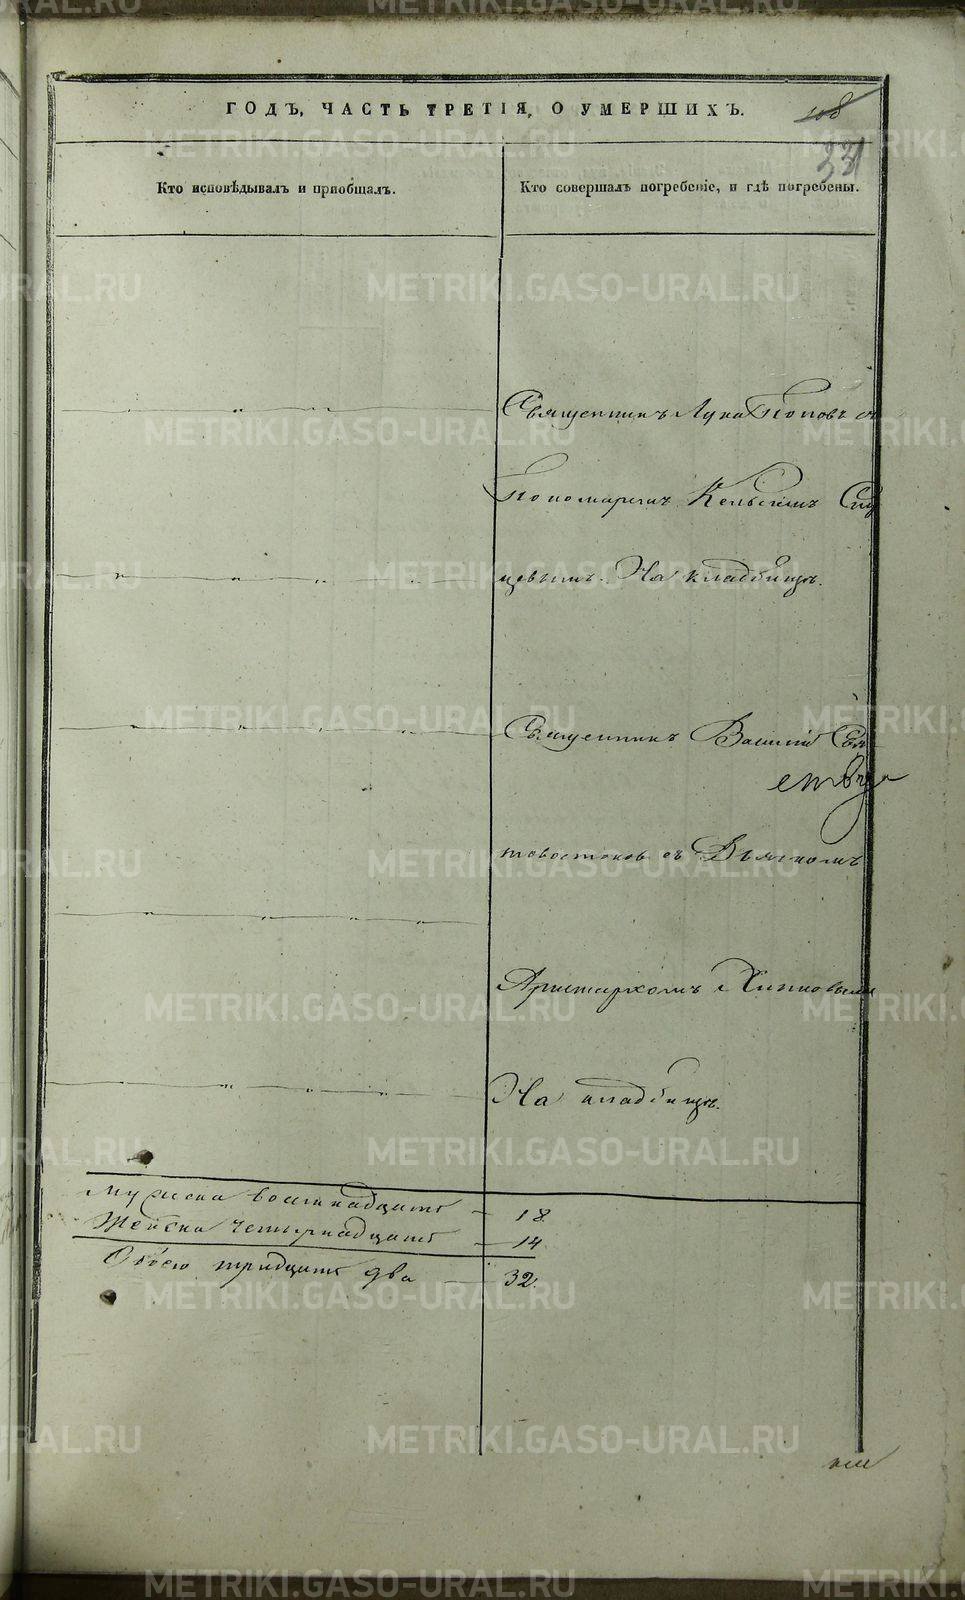 ГОДЪ, ЧАСТЬ ТРЕТІЯ, О УМЕРШИХЪ.
108
331
Кто исповѣдывалъ и пріобщалъ.
Кто совершалъ погребеніе, и гдѣ погребены.
Священникъ Лука Поповъ съ
Пономаремъ
цевымъ. На кладбищѣ.
Священникъ Василій Свя
тостоковъ съ Дьячкомъ
Аристархомъ Хипповымъ
На кладбищѣ.
Мужеска восемнадцать - 18
Женска четырнадцать - 14
Обоего тридцать два - 32.
METRIKI.GASO-URAL.RU